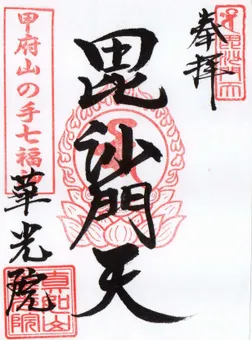 奉拝
毘沙門天
甲府山の手七福
華光院